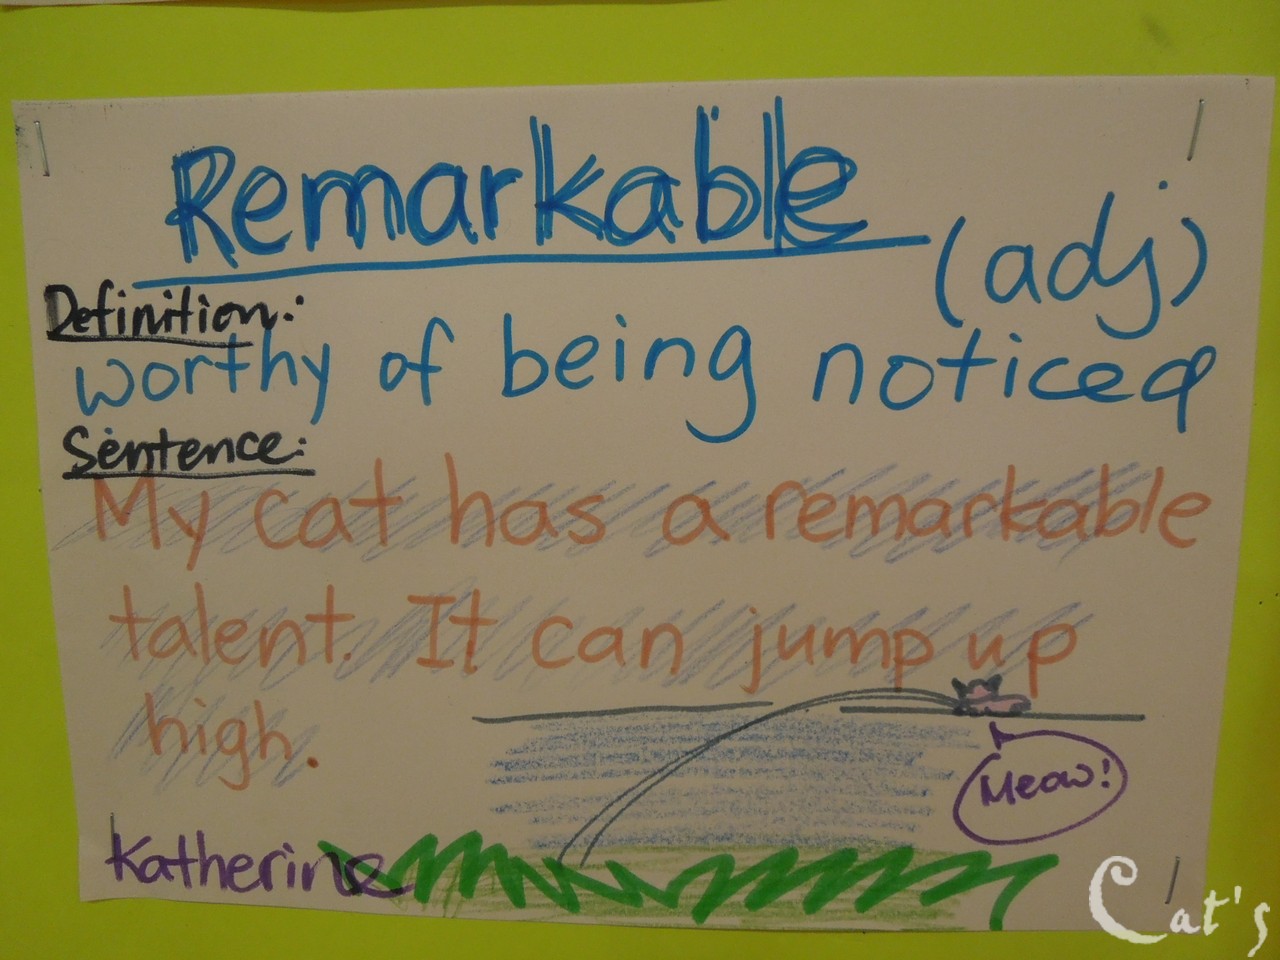 Remarkable (adj)
Definition:
worthy of being noticed
Sentence:
My cat has a remarkable
talent. It can jump up
high.
Meow!
Katherine
Cat's